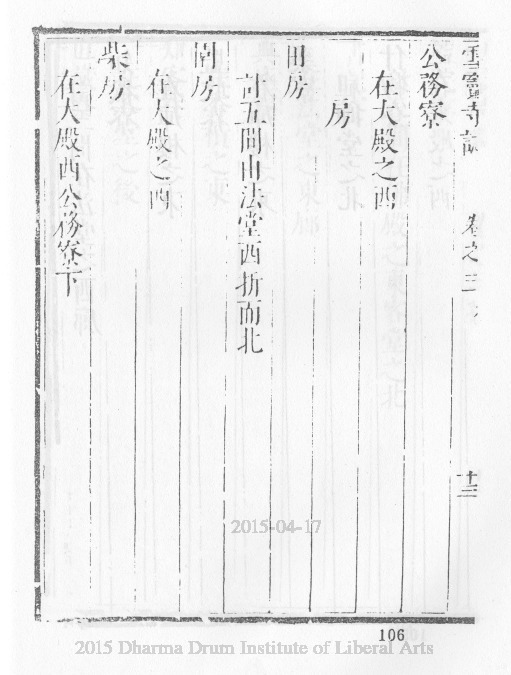 雲竇寺誌 卷之三 十三
公務寮
在大殿之西
房
田房
計五間由法堂西折而北
園房
在大殿之西
柴房
在大殿西公務寮下
106
2015-04-17
2015 Dharma Drum Institute of Liberal Arts